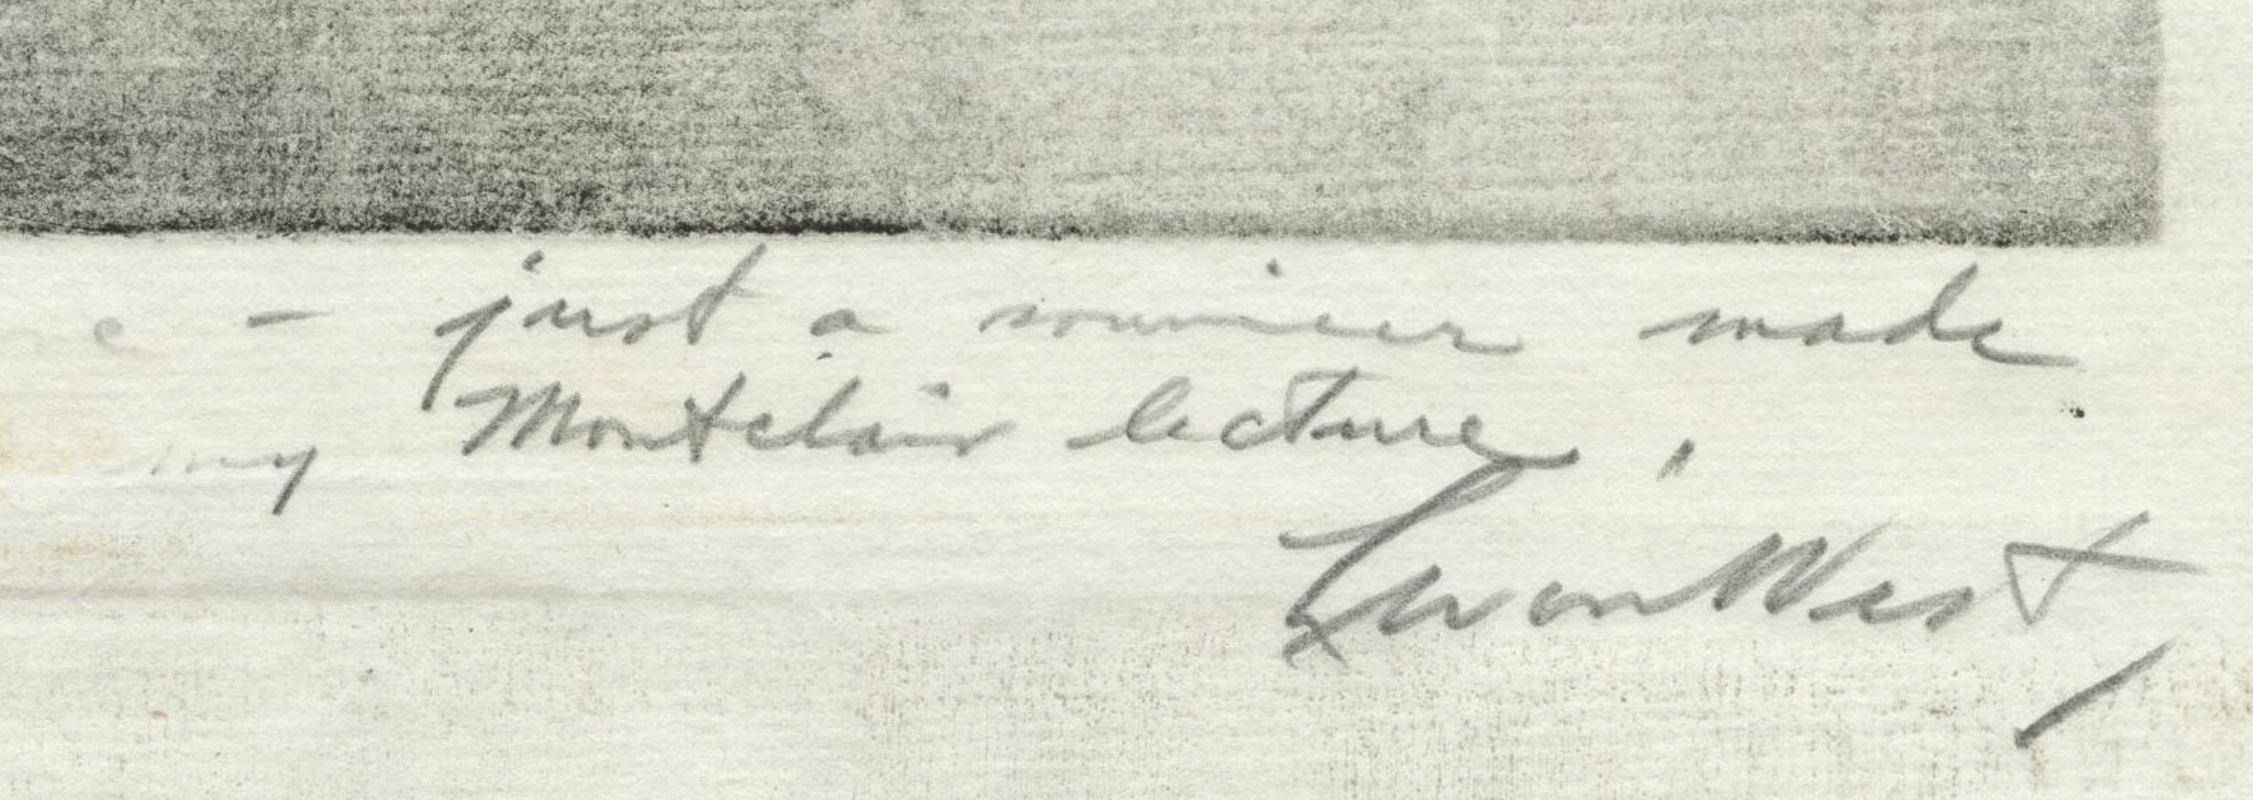 - just a souvenir made
my Montclair lecture.
Levon West